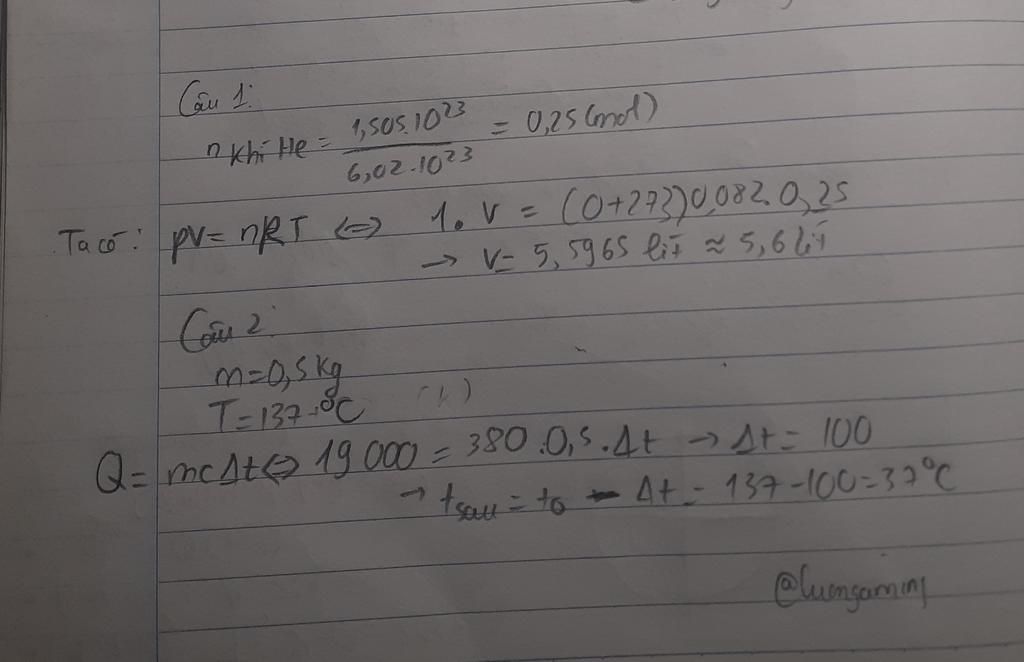 Câu 1:
n khí He = 1,505.10²³ / 6,02.10²³ = 0,25 (mol)
Ta có: pV = nRT ⇔ 1. V = (0+273)0,082.0,25
→ V = 5,5965 lít ≈ 5,6 lít
Câu 2
m = 0,5 kg
T = 137 °C
Q = mcΔt ⇔ 19 000 = 380 . 0,5 . Δt → Δt = 100
→ t sau = t₀ - Δt = 137 - 100 = 37°C